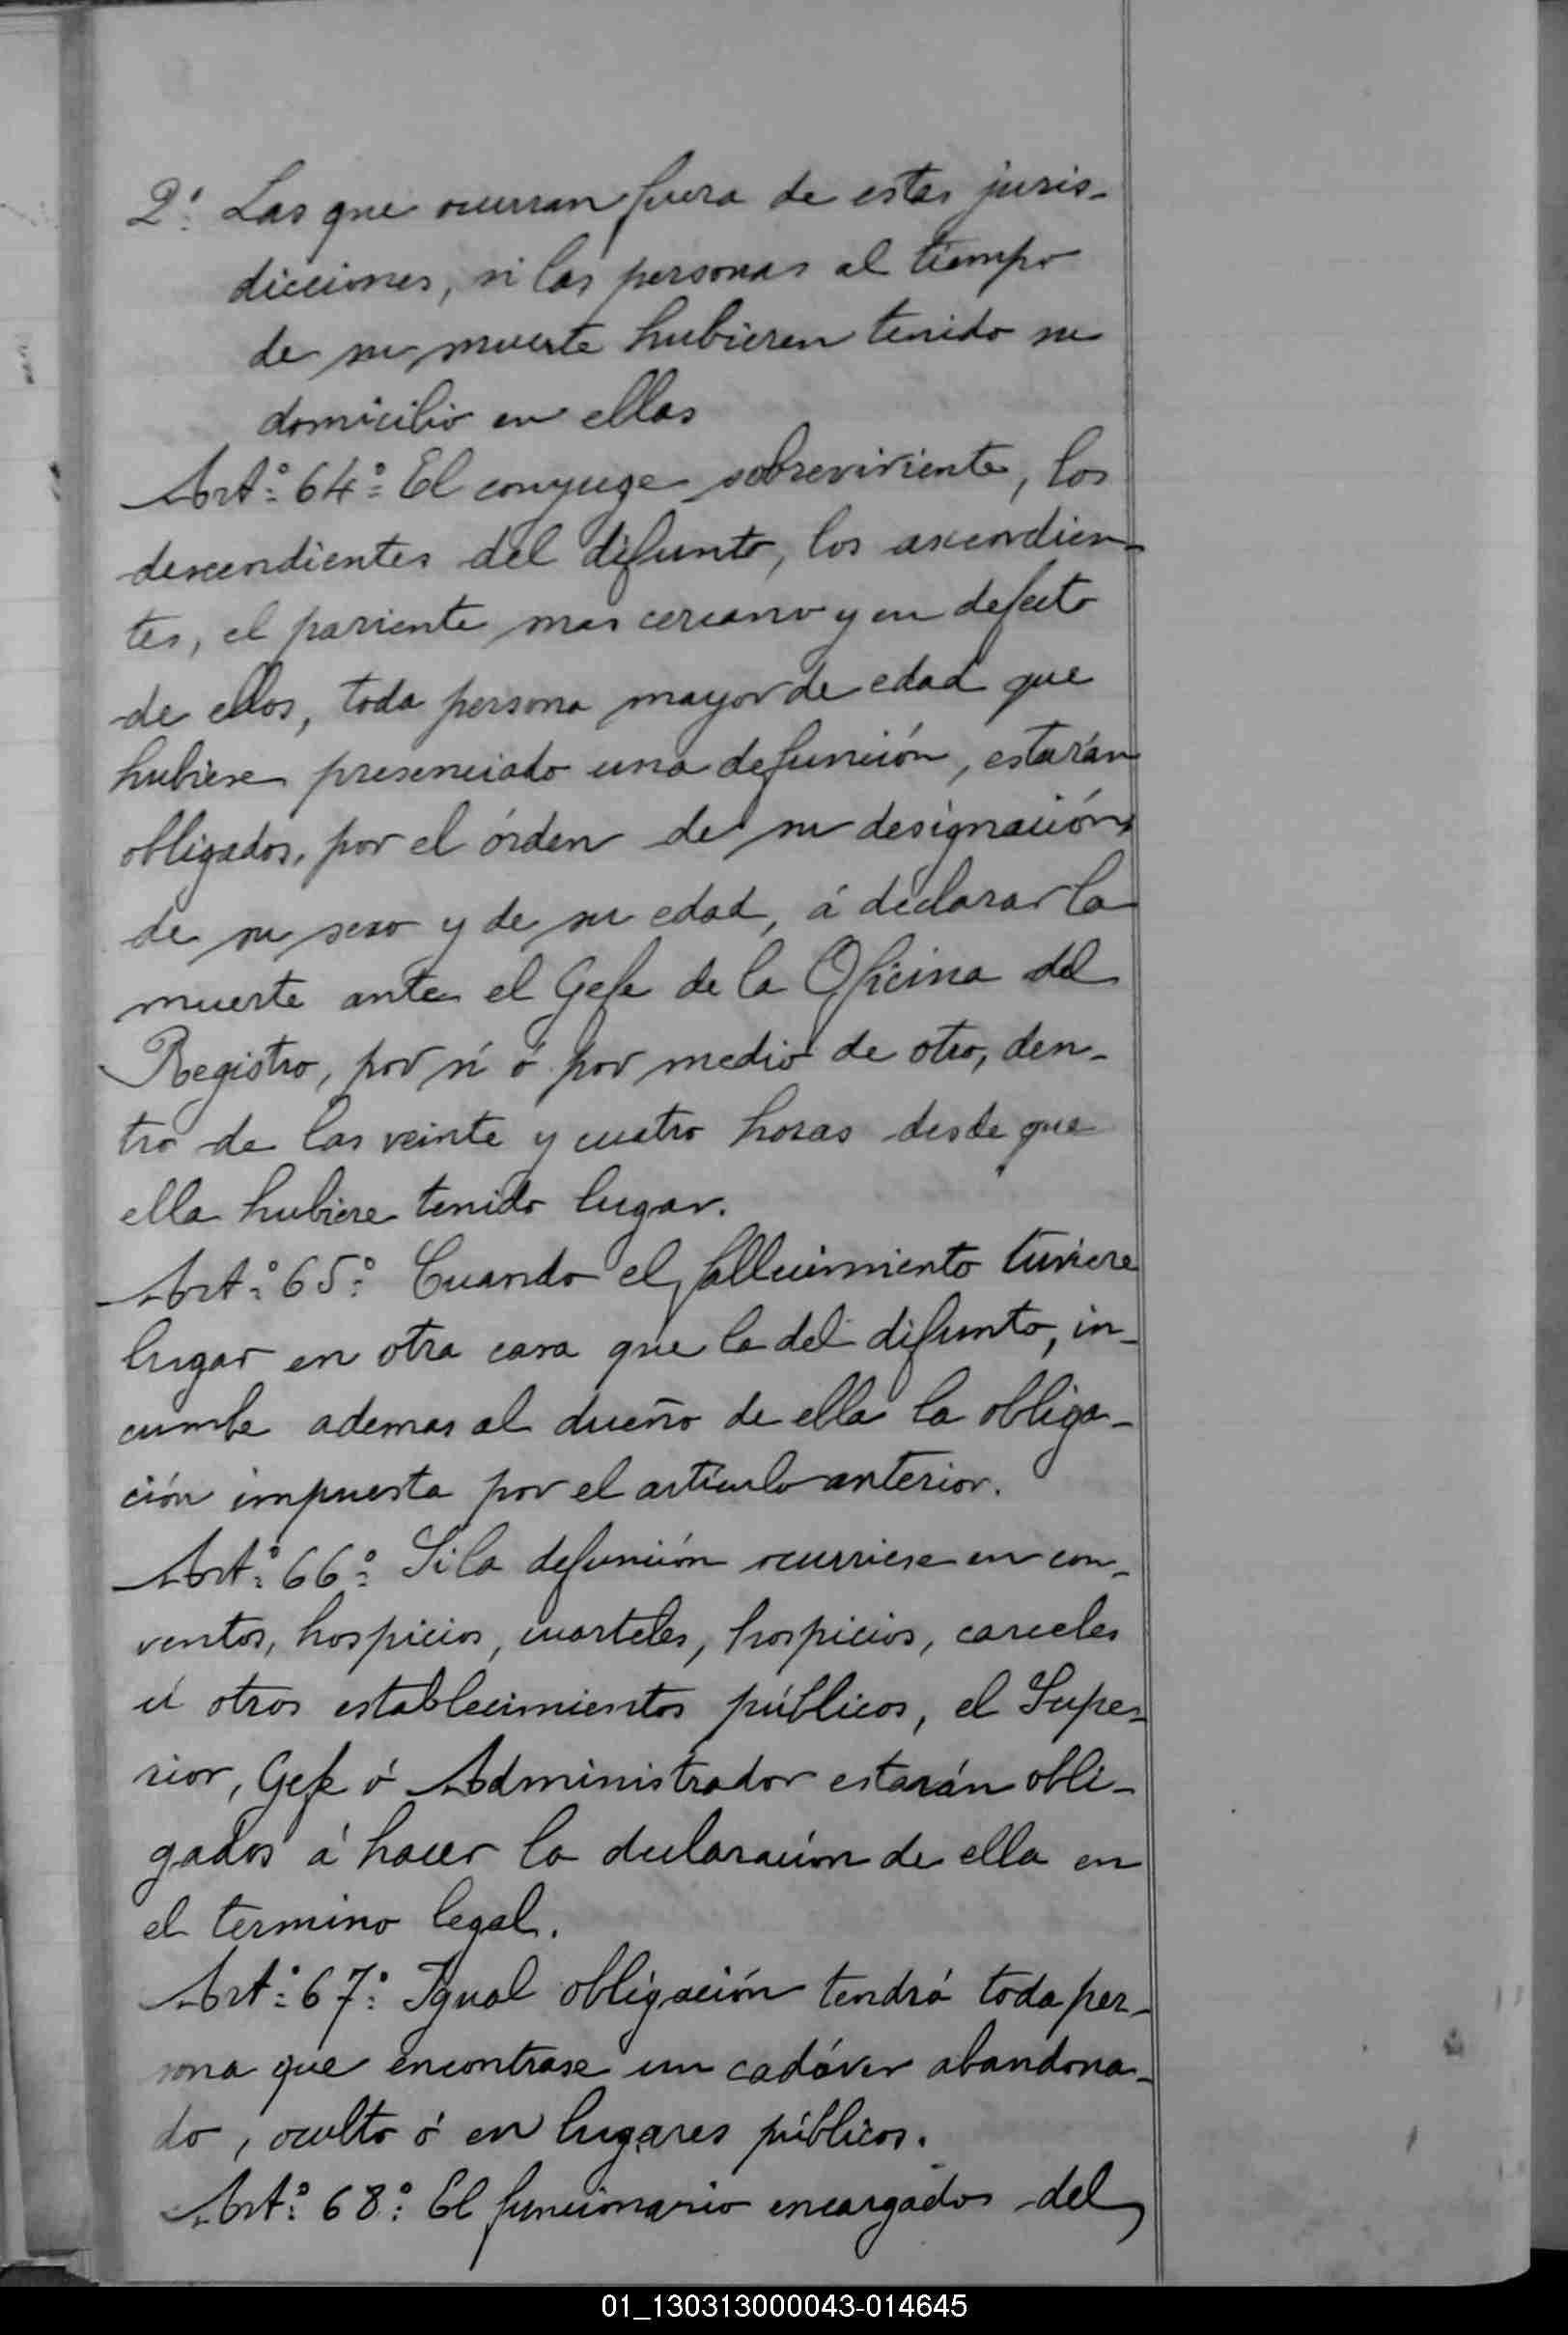 2º: Las que ocurran fuera de estas juris-
dicciones, si las personas al tiempo
de su muerte hubieren tenido su
domicilio en ellas
Artº: 64º: El conyuge sobreviviente, los
descendientes del difunto, los ascendien-
tes, el pariente mas cercano y en defecto
de ellos, toda persona mayor de edad que
hubiese presenciado una defunción, estarán
obligados, por el órden de su designación,
de su sexo y de su edad, á declarar la
muerte ante el Gefe de la Oficina del
Registro, por sí ó por medio de otro, den-
tro de las veinte y cuatro horas desde que
ella hubiere tenido lugar.
Artº: 65º: Cuando el fallecimiento tuviere
lugar en otra casa que la del difunto, in-
cumbe ademas al dueño de ella la obliga-
ción impuesta por el artículo anterior.
Artº: 66º: Si la defunción ocurriese en con-
ventos, hospicios, cuarteles, hospicios, carceles
ú otros establecimientos públicos, el Supe-
rior, Gefe ó Administrador estarán obli-
gados á hacer la declaración de ella en
el termino legal.
Artº: 67º: Igual obligación tendrá toda per-
sona que encontrase un cadáver abandona-
do, oculto ó en lugares públicos.
Artº: 68º: El funcionario encargados del
01_130313000043-014645